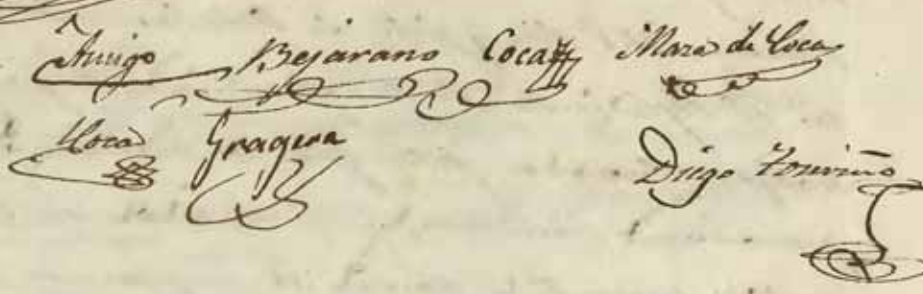 Amigo Bejarano Coca Maza de Coca
Coca Gragera Diego Touriño